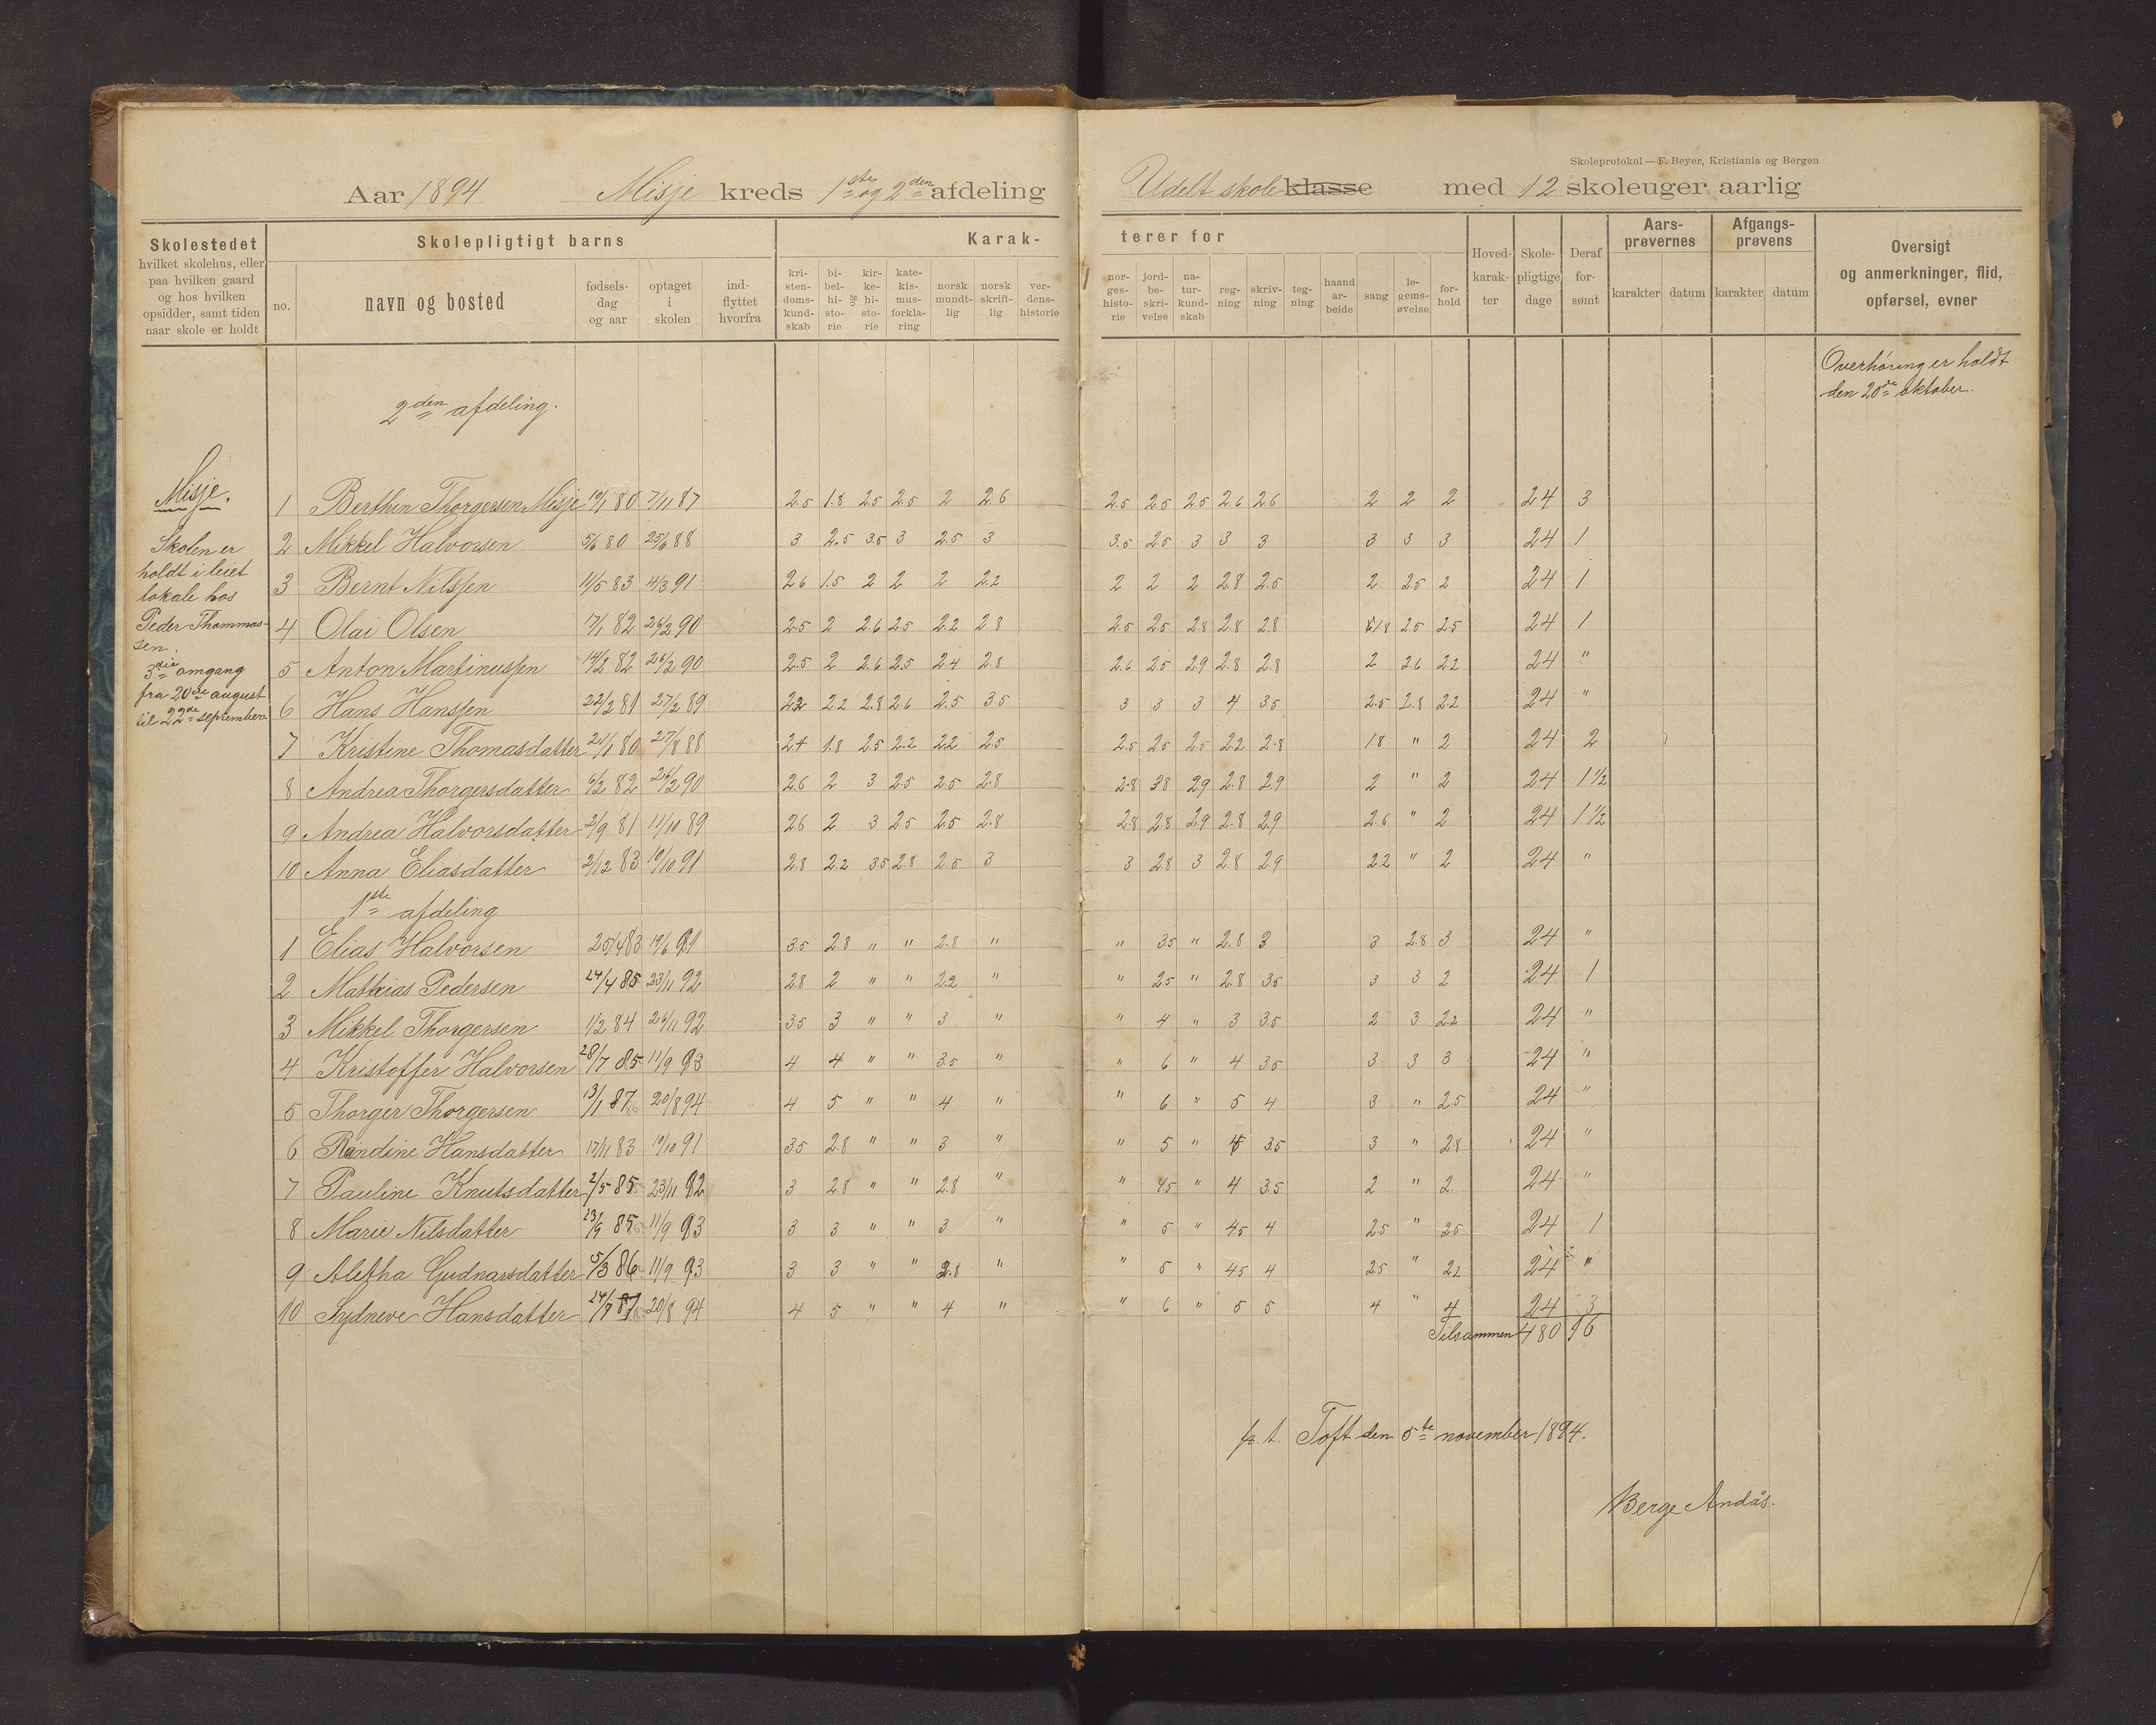 Skoleprotokol — F. Beyer, Kristiania og Bergen
Aar 1894 Misje kreds 1ste og 2den afdeling Udelt skole klasse med 12 skoleuger aarlig
Skolestedet
hvilket skolehus, eller
paa hvilken gaard
og hos hvilken
opsidder, samt tiden
naar skole er holdt
Skolepligtigt barns
no.
navn og bosted
fødsels-
dag
og aar
optaget
i
skolen
ind-
flyttet
hvorfra
Karak-
terer for
kri-
sten-
doms-
kund-
skab
bi-
bel-
hi-
sto-
rie
og
kir-
ke-
hi-
sto-
rie
kate-
kis-
mus-
forkla-
ring
norsk
mundt-
lig
norsk
skrift-
lig
ver-
dens-
historie
nor-
ges-
histo-
rie
jord-
be-
skri-
velse
na-
tur-
kund-
skab
reg-
ning
skriv-
ning
teg-
ning
haand
ar-
beide
sang
le-
gems-
øvelse
for-
hold
Hoved-
karak-
ter
Skole-
pligtige
dage
Deraf
for-
sømt
Aars-
prøvernes
karakter datum
Afgangs-
prøvens
karakter datum
Oversigt
og anmerkninger, flid,
opførsel, evner
Overhøring er holdt
den 20de oktober.
2den afdeling.
Misje.
Skolen er
holdt i leiet
lokale hos
Peder Thommas-
sen.
3die omgang
fra 20de august
til 22de september
1 Berthin Thorgersen Misje 19/1 80 7/11 87 2.5 1.8 2.5 2.5 2 2.6 2.5 2.5 2.5 2.6 2.6 2 2 2 24 3
2 Mikkel Halvorsen 5/6 80 25/6 88 3 2.5 3.5 3 2.5 3 3.5 2.5 3 3 3 3 3 3 24 1
3 Bernt Nilssen 11/5 83 4/3 91 2.6 1.5 2 2 2 2.2 2 2 2 2.8 2.5 2 2.5 2 24 1
4 Olai Olsen 17/1 82 26/2 90 2.5 2 2.6 2.5 2.2 2.8 2.5 2.5 2.8 2.8 2.8 1.8 2.5 2.5 24 1
5 Anton Martinussen 14/2 82 26/2 90 2.5 2 2.6 2.5 2.4 2.8 2.6 2.5 2.9 2.8 2.8 2 2.6 2.2 24 "
6 Hans Hanssen 22/2 81 27/2 89 2.2 2.2 2.8 2.6 2.5 3.5 3 3 3 4 3.5 2.5 2.8 2.2 24 "
7 Kristine Thomasdatter 21/1 80 27/8 88 2.4 1.8 2.5 2.2 2.2 2.5 2.5 2.5 2.5 2.2 2.8 1.8 " 2 24 2
8 Andrea Thorgersdatter 6/2 82 26/2 90 2.6 2 3 2.5 2.5 2.8 2.8 3.8 2.9 2.8 2.9 2 " 2 24 1 1/2
9 Andrea Halvorsdatter 2/9 81 11/10 89 2.6 2 3 2.5 2.5 2.8 2.8 2.8 2.9 2.8 2.9 2.6 " 2 24 1 1/2
10 Anna Eliasdatter 2/12 83 10/10 91 2.8 2.2 3.5 2.8 2.5 3 3 2.8 3 2.8 2.9 2.2 " 2 24 "
1ste afdeling
1 Elias Halvorsen 25/4 83 19/6 91 3.5 2.8 " " 2.8 " " 3.5 " 2.8 3 3 2.8 3 24 "
2 Mathias Pedersen 24/4 85 23/11 92 2.8 2 " " 2.2 " " 2.5 " 2.8 3.5 3 3 2 24 1
3 Mikkel Thorgersen 1/2 84 26/11 92 3.5 3 " " 3 " " 4 " 3 3.5 2 3 2.2 24 "
4 Kristoffer Halvorsen 28/7 85 11/9 93 4 4 " " 3.5 " " 6 " 4 3.5 3 3 3 24 "
5 Thorger Thorgersen 13/1 87 20/8 94 4 5 " " 4 " " 6 " 5 4 3 " 2.5 24 "
6 Randine Hansdatter 17/11 83 10/10 91 3.5 2.8 " " 3 " " 5 " 4 3.5 3 " 2.8 24 "
7 Pauline Knutsdatter 2/5 85 23/11 92 3 2.8 " " 2.8 " " 4.5 " 4 3.5 2 " 2 24 "
8 Marie Nilsdatter 23/9 85 11/9 93 3 3 " " 3 " " 5 " 4.5 4 2.5 " 2.5 24 1
9 Aletha Gudnarsdatter 5/3 86 11/9 93 3 3 " " 2.8 " " 5 " 4.5 4 2.5 " 2.2 24 "
10 Sydneve Hansdatter 24/7 87 20/8 94 4 5 " " 4 " " 6 " 5 5 4 " 4 24 3
Tilsammen 480 16
p.t. Toft den 5te november 1894.
Berge Andås.